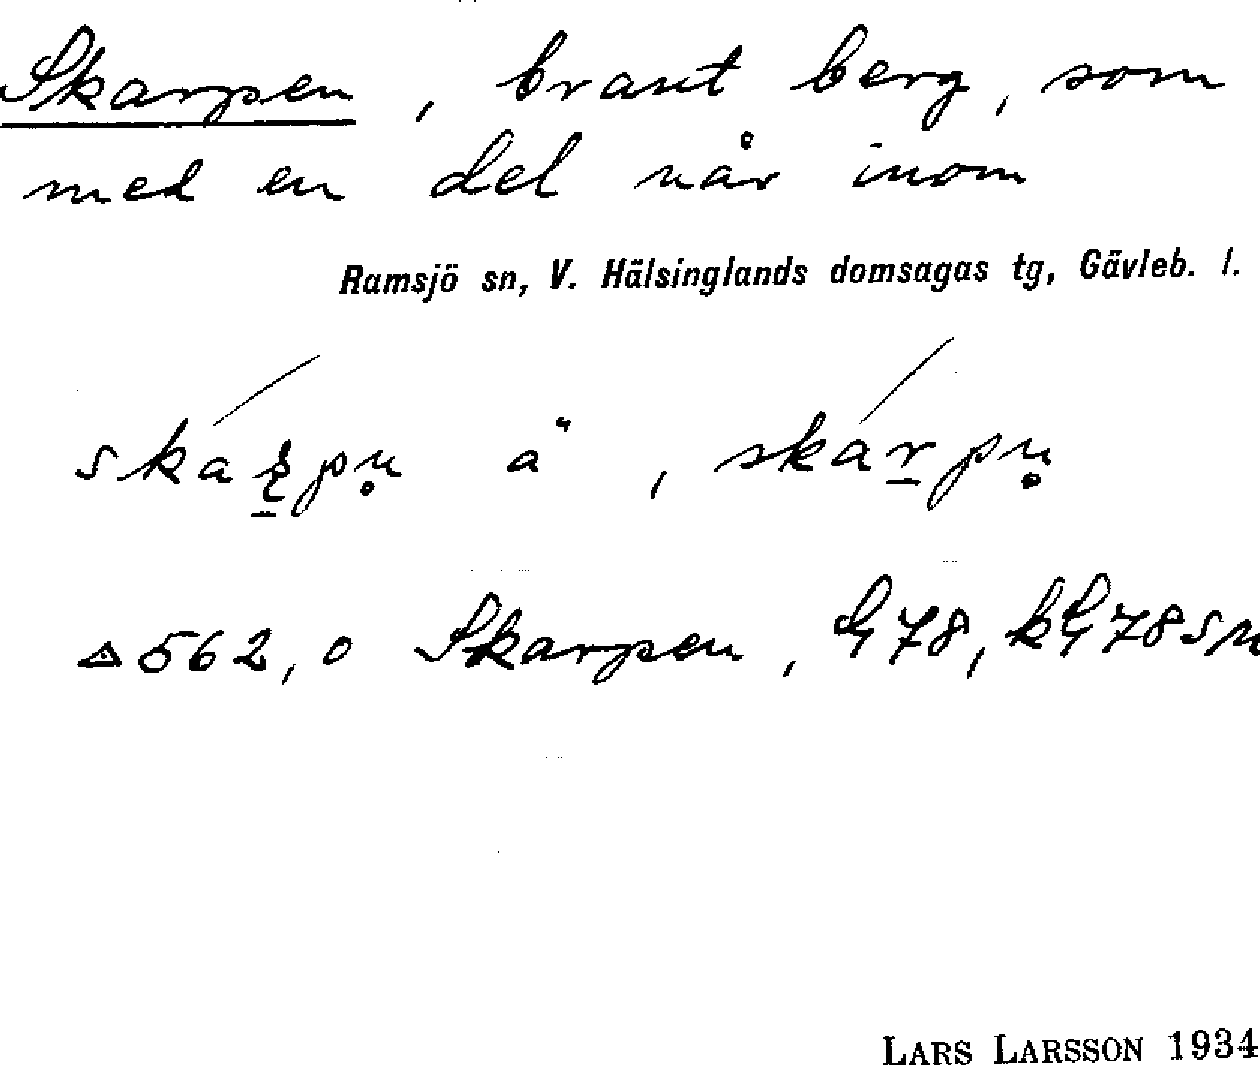 Skarpen, brant berg, som
med en del når inom
Ramsjö sn, V. Hälsinglands domsagas tg, Gävleb. l.
ä, skarpu̥
△ 562,0 Skarpen, G78, kG78sn
LARS LARSSON 1934